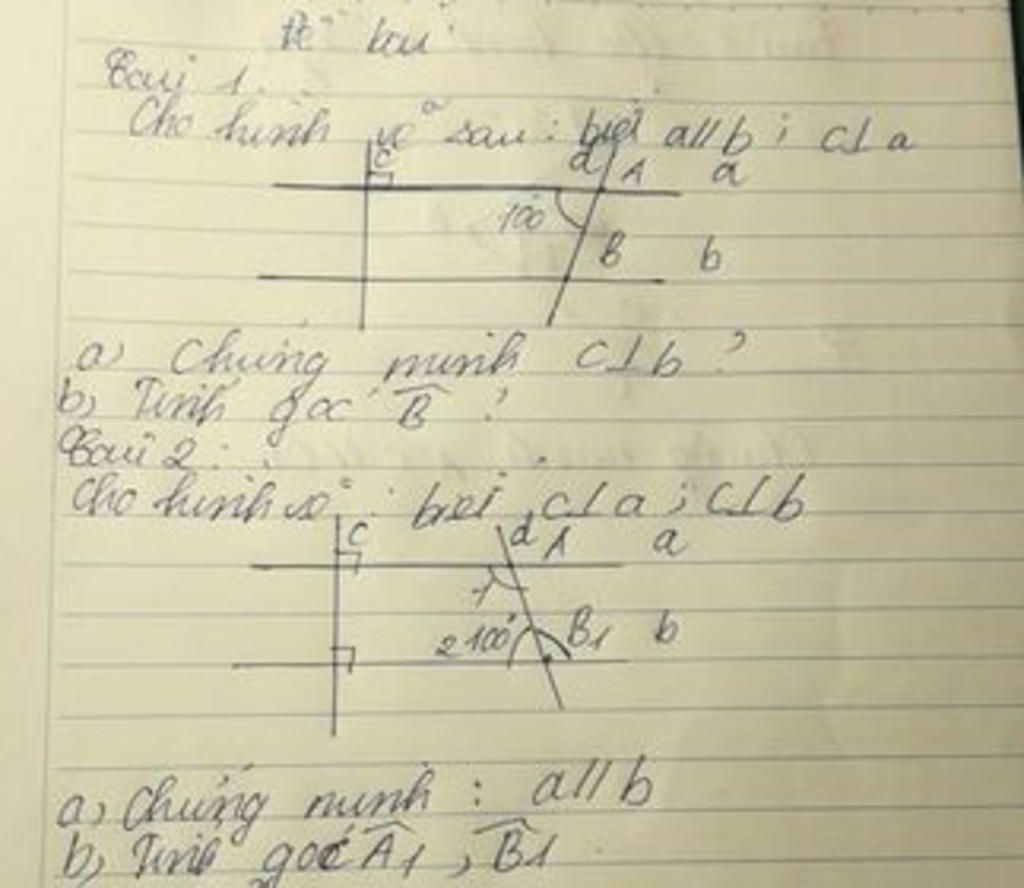 Đề bài
Bài 1:
Cho hình vẽ sau: biết a//b; c⊥a
c d A a
100°
B b
a) Chứng minh c⊥b?
b) Tính góc B̂?
Bài 2:
Cho hình vẽ: biết c⊥a; c⊥b
c d A a
1
2 100° B1 b
a) Chứng minh: a//b
b) Tính góc Â1, B̂1